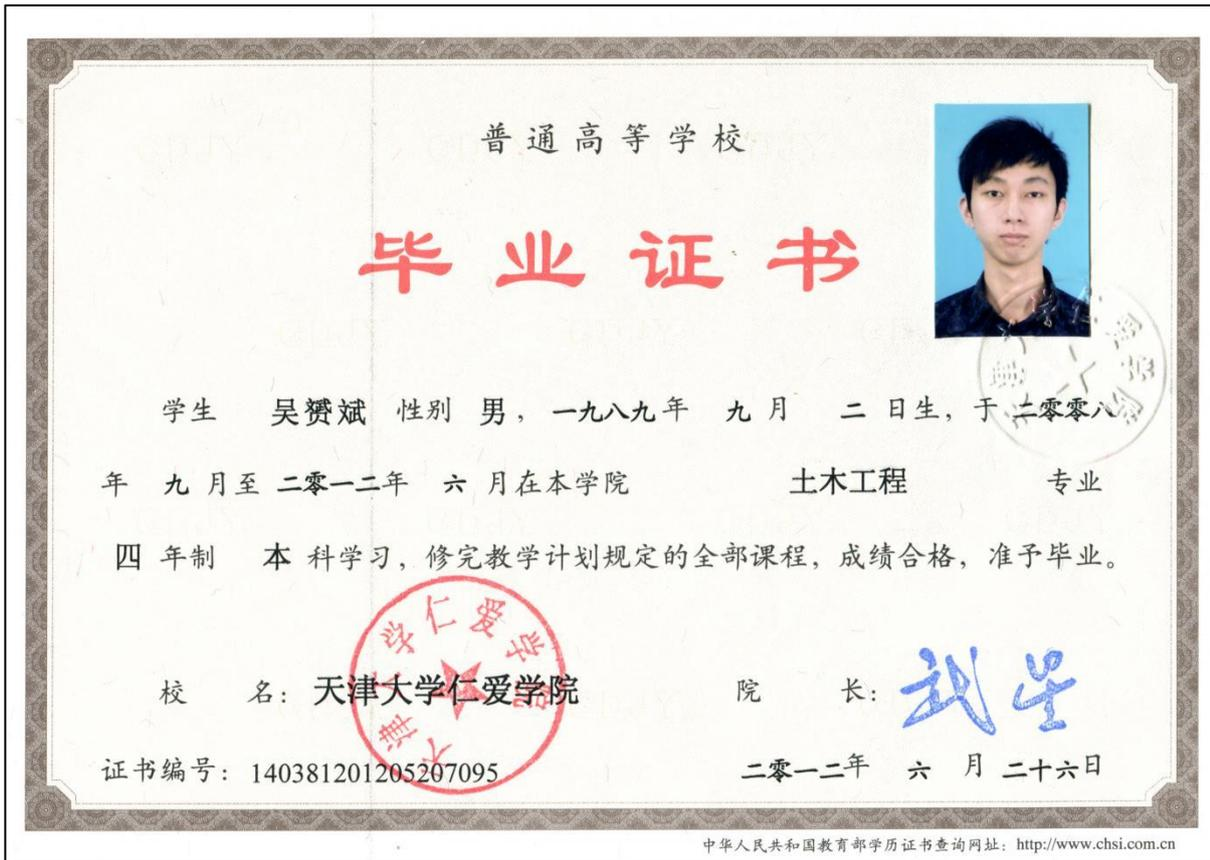 普通高等学校
毕业证书
学生 吴赟斌 性别 男，一九八九年 九 月 二 日生，于 二零零八
年 九 月至 二零一二年 六 月在本学院 土木工程 专业
四 年制 本 科学习，修完教学计划规定的全部课程，成绩合格，准予毕业。
天津大学仁爱学院
校 名：天津大学仁爱学院 院 长：武星
证书编号：140381201205207095 二零一二年 六 月 二十六日
中华人民共和国教育部学历证书查询网址：http://www.chsi.com.cn